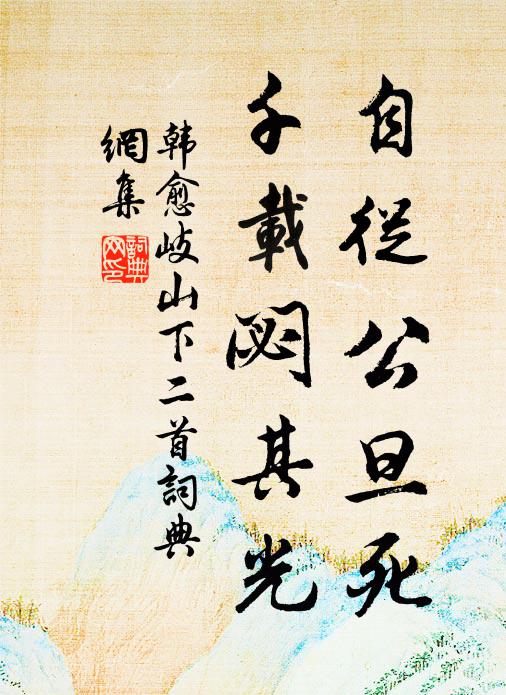 自從公旦死
千載閟其光
韓愈岐山下二首詞典
網集
詞典
网印